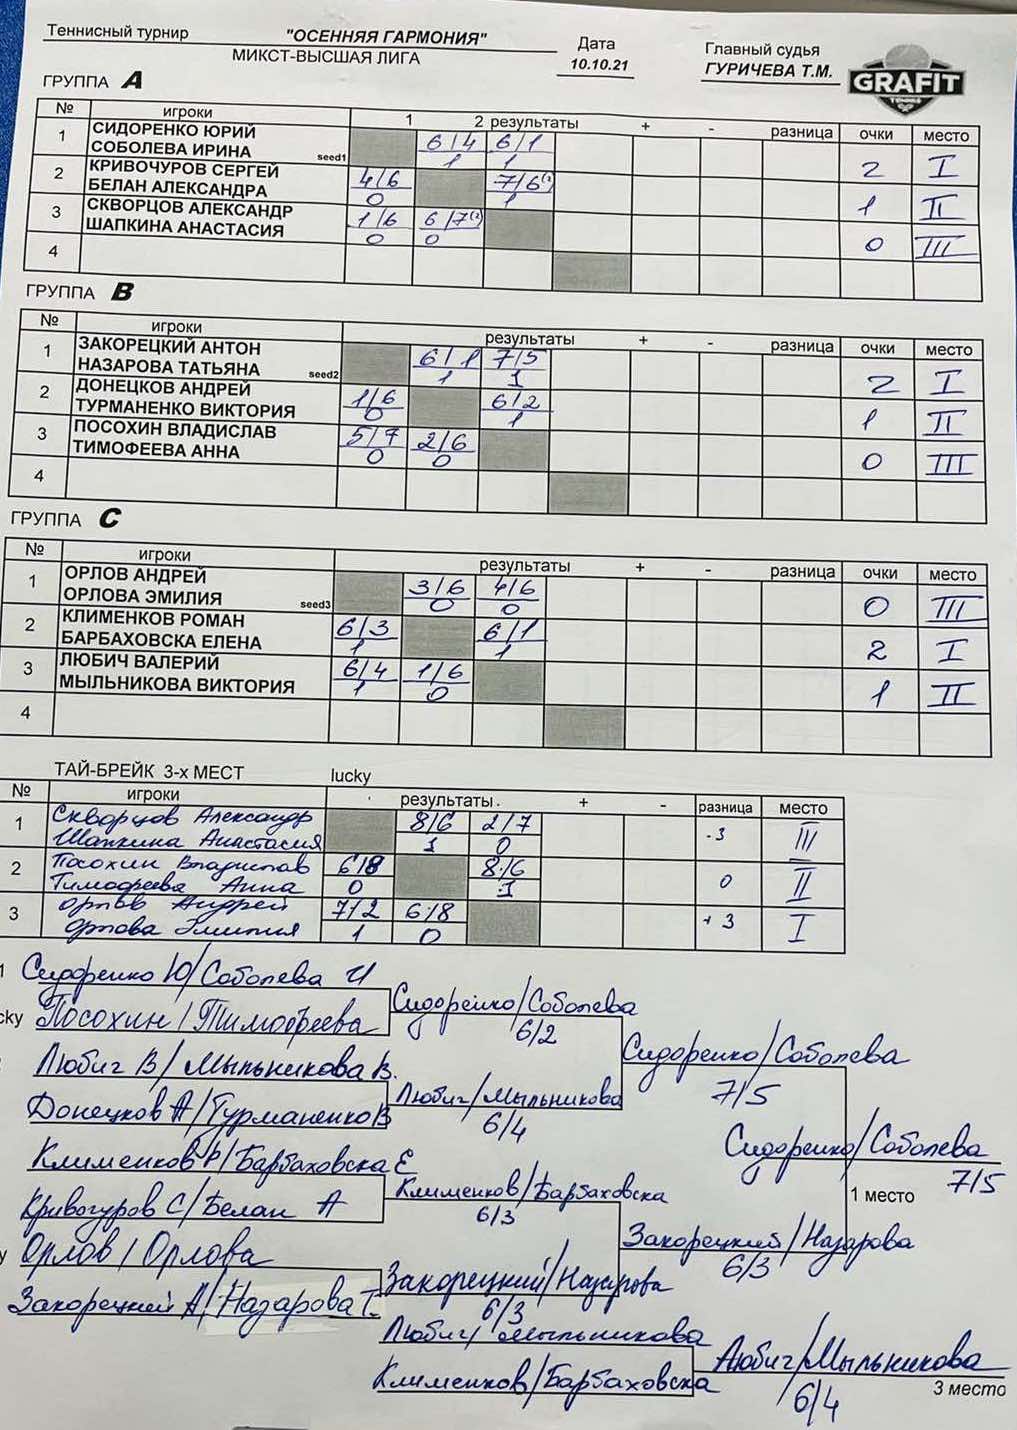 Теннисный турнир "ОСЕННЯЯ ГАРМОНИЯ" Дата Главный судья
МИКСТ-ВЫСШАЯ ЛИГА 10.10.21 ГУРИЧЕВА Т.М. GRAFIT
ГРУППА A
№ игроки 1 2 результаты + - разница очки место
1 СИДОРЕНКО ЮРИЙ 6/4 6/1
СОБОЛЕВА ИРИНА seed1 1 1 2 I
2 КРИВОЧУРОВ СЕРГЕЙ 4/6 7/6(2)
БЕЛАН АЛЕКСАНДРА 0 1 1 II
3 СКВОРЦОВ АЛЕКСАНДР 1/6 6/7(2)
ШАПКИНА АНАСТАСИЯ 0 0 0 III
4
ГРУППА B
№ игроки результаты + - разница очки место
1 ЗАКОРЕЦКИЙ АНТОН 6/1 7/5
НАЗАРОВА ТАТЬЯНА seed2 1 1 2 I
2 ДОНЕЦКОВ АНДРЕЙ 1/6 6/2
ТУРМАНЕНКО ВИКТОРИЯ 0 1 1 II
3 ПОСОХИН ВЛАДИСЛАВ 5/7 2/6
ТИМОФЕЕВА АННА 0 0 0 III
4
ГРУППА C
№ игроки результаты + - разница очки место
1 ОРЛОВ АНДРЕЙ 3/6 4/6
ОРЛОВА ЭМИЛИЯ seed3 0 0 0 III
2 КЛИМЕНКОВ РОМАН 6/3 6/1
БАРБАХОВСКА ЕЛЕНА 1 1 2 I
3 ЛЮБИЧ ВАЛЕРИЙ 6/4 1/6
МЫЛЬНИКОВА ВИКТОРИЯ 1 0 1 II
4
ТАЙ-БРЕЙК 3-х МЕСТ lucky
№ игроки результаты + - разница место
1 Скворцов Александр 8/6 2/7
Шапкина Анастасия 1 0 -3 III
2 Посохин Владислав 6/8 8/6
Тимофеева Анна 0 1 0 II
3 Орлов Андрей 7/2 6/8
Орлова Эмилия 1 0 +3 I
1 Сидоренко Ю/Соболева И
Сидоренко/Соболева
cky Посохин/Тимофеева
6/2
Сидоренко/Соболева
Любич В/Мыльникова В.
7/5
Любич/Мыльникова
Донецков А/Турманенко В
6/4
Сидоренко/Соболева
Клименков Р/Барбаховска Е
7/5
Клименков/Барбаховска
1 место
Кривочуров С/Белан А
6/3
Закорецкий/Назарова
y Орлов/Орлова
6/3
Закорецкий/Назарова
Закорецкий А/Назарова Т.
6/3
Любич/Мыльникова
Любич/Мыльникова
Клименков/Барбаховска
3 место
6/4